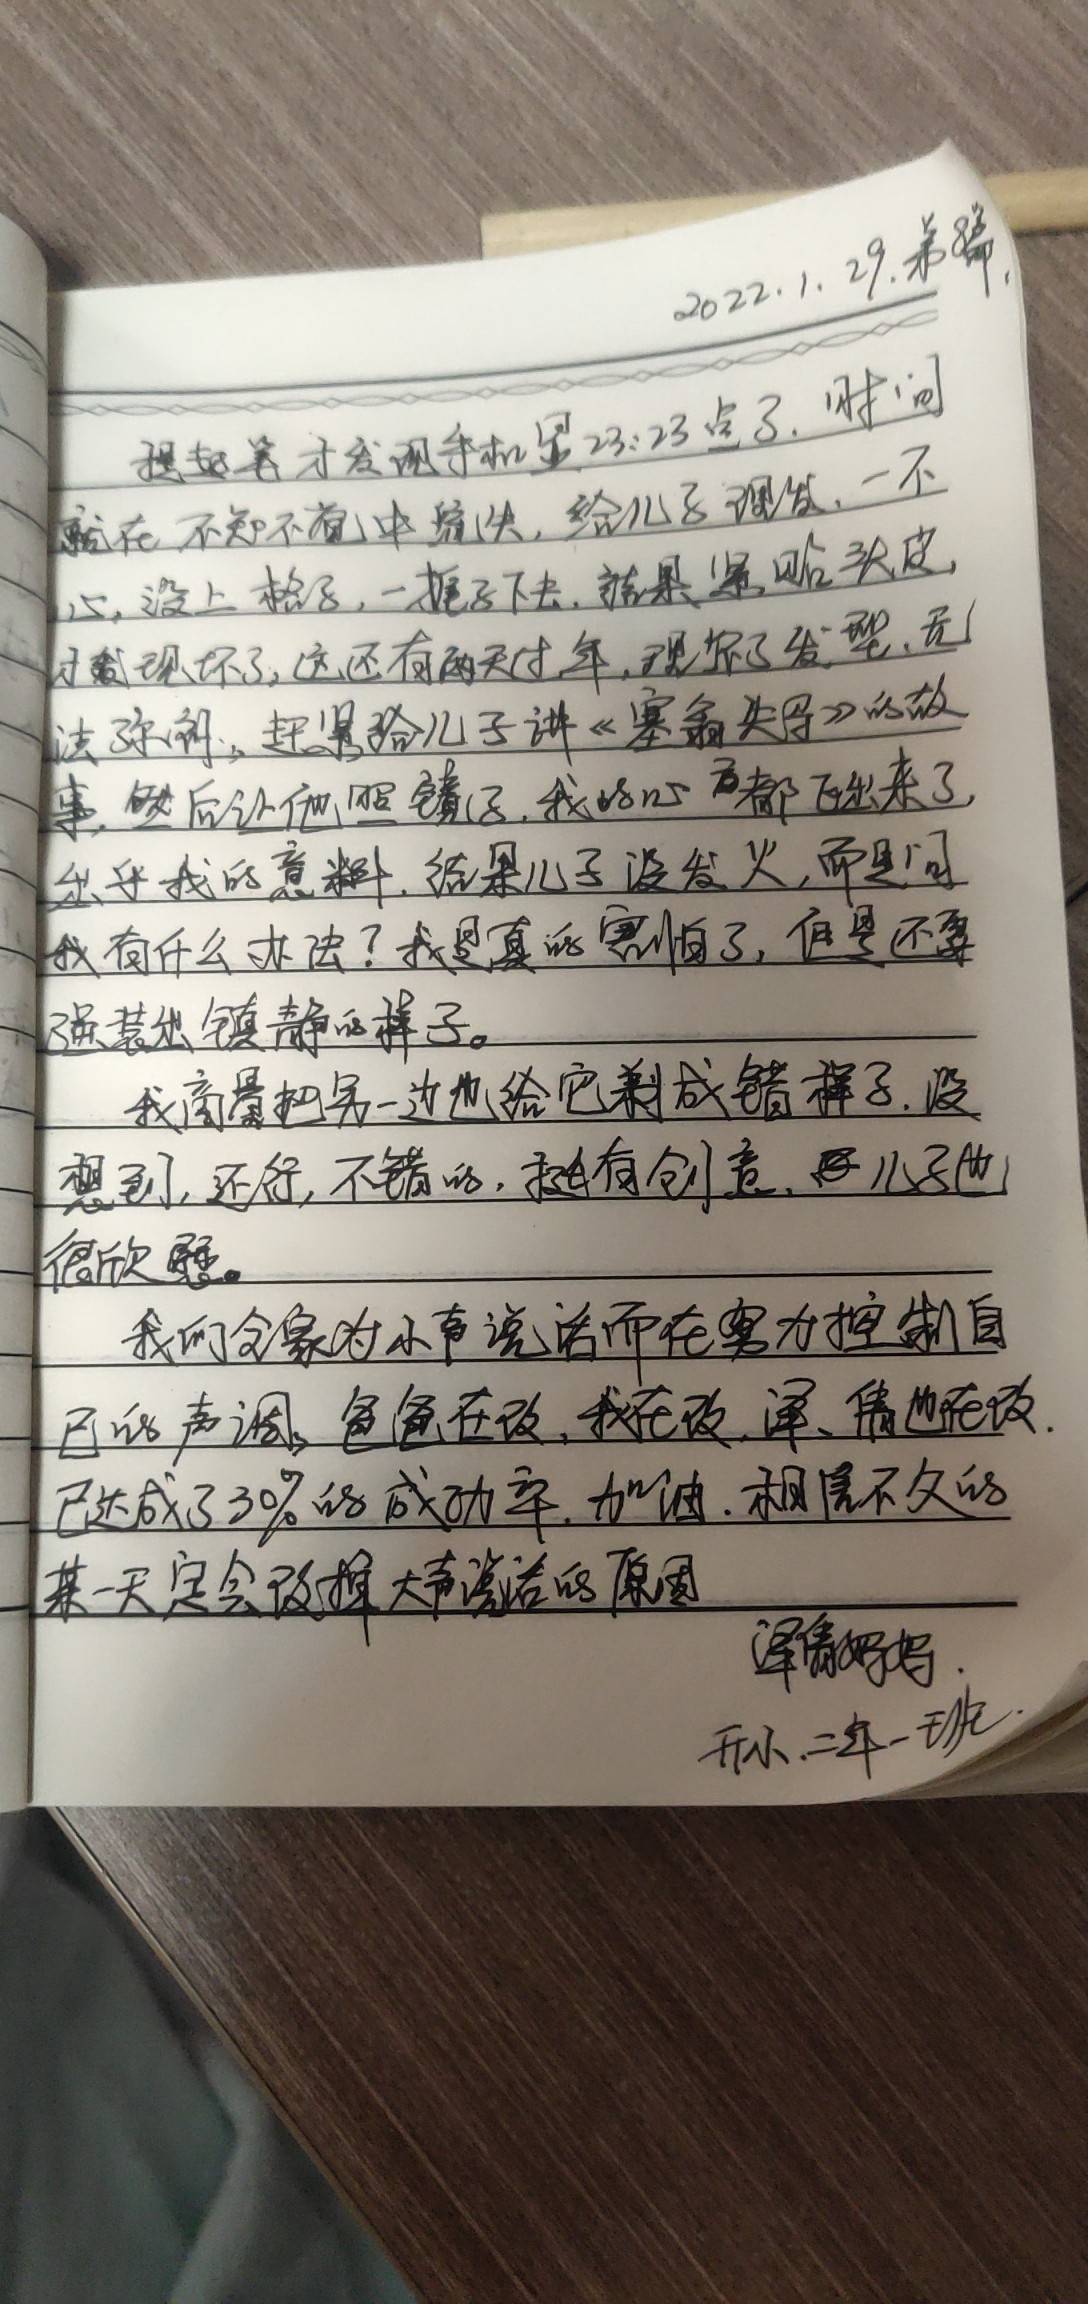 2022.1.29.第8篇.
提起笔才发现手机是23:23点了.时间
就在不知不觉中流失,给儿子理发,一不
心,没上格子,一推子下去.结果紧贴头皮,
才发现坏了,这还有两天过年,理坏了发型,无
法弥补,赶紧给儿子讲《塞翁失马》的故
事,然后让他照镜子,我的心都飞出来了,
出乎我的意料.结果儿子没发火,而是问
我有什么办法?我是真的害怕了,但是还要
强装出镇静的样子。
我商量把另一边也给它剃成错样子.没
想到,还行,不错的,挺有创意,儿子也
很欣慰。
我们全家为小声说话而在努力控制自
己的声调。爸爸在改,我在改,泽、倩也在改.
已达成了30%的成功率.加油.相信不久的
某一天定会改掉大声说话的原因
泽倩妈妈.
开小.二年一班.